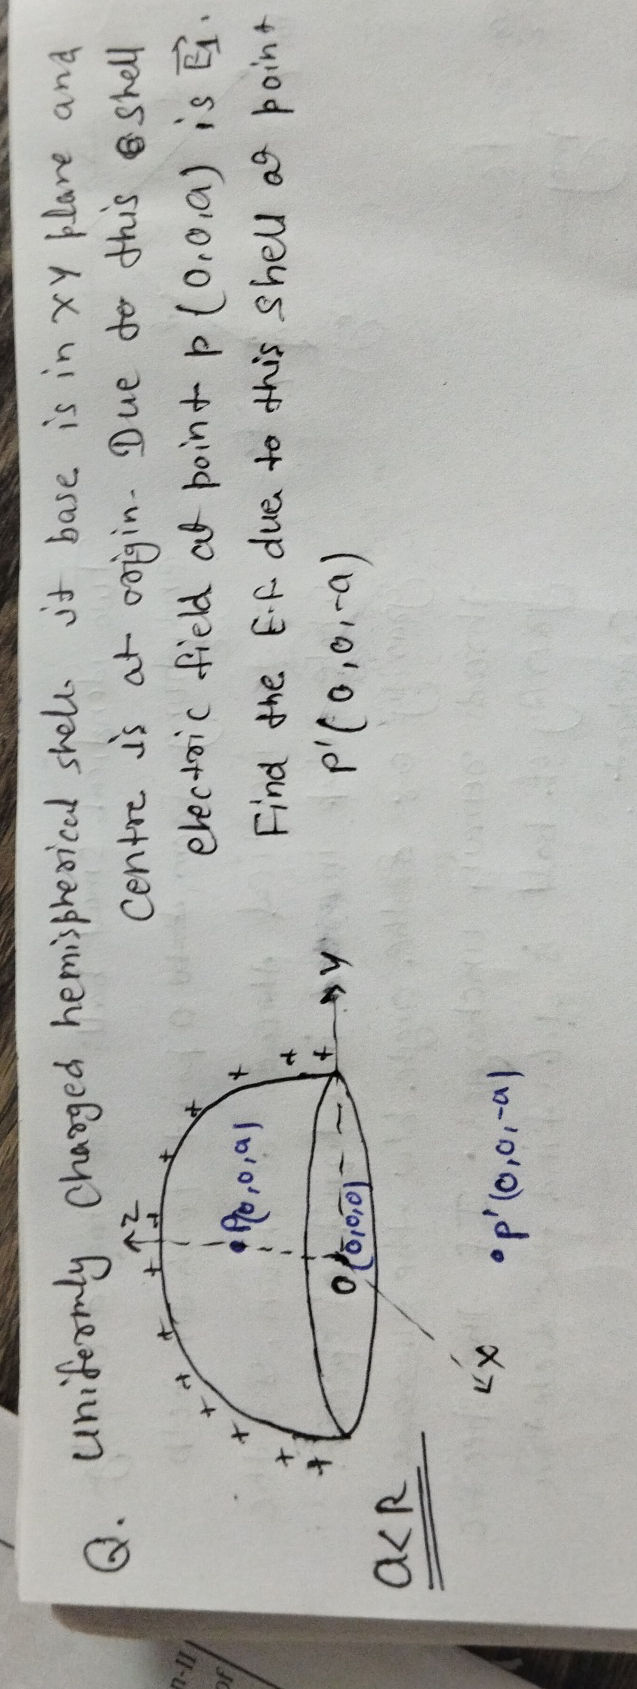 Q. Uniformly charged hemispherical shell. it base is in XY plane and
centre is at origin. Due to this shell
electric field at point P(0,0,a) is E⃗₁.
Find the E.F due to this shell at point
P'(0,0,-a)
z
P(0,0,a)
O
(0,0,0)
Y
X
P'(0,0,-a)
a<R
n-II